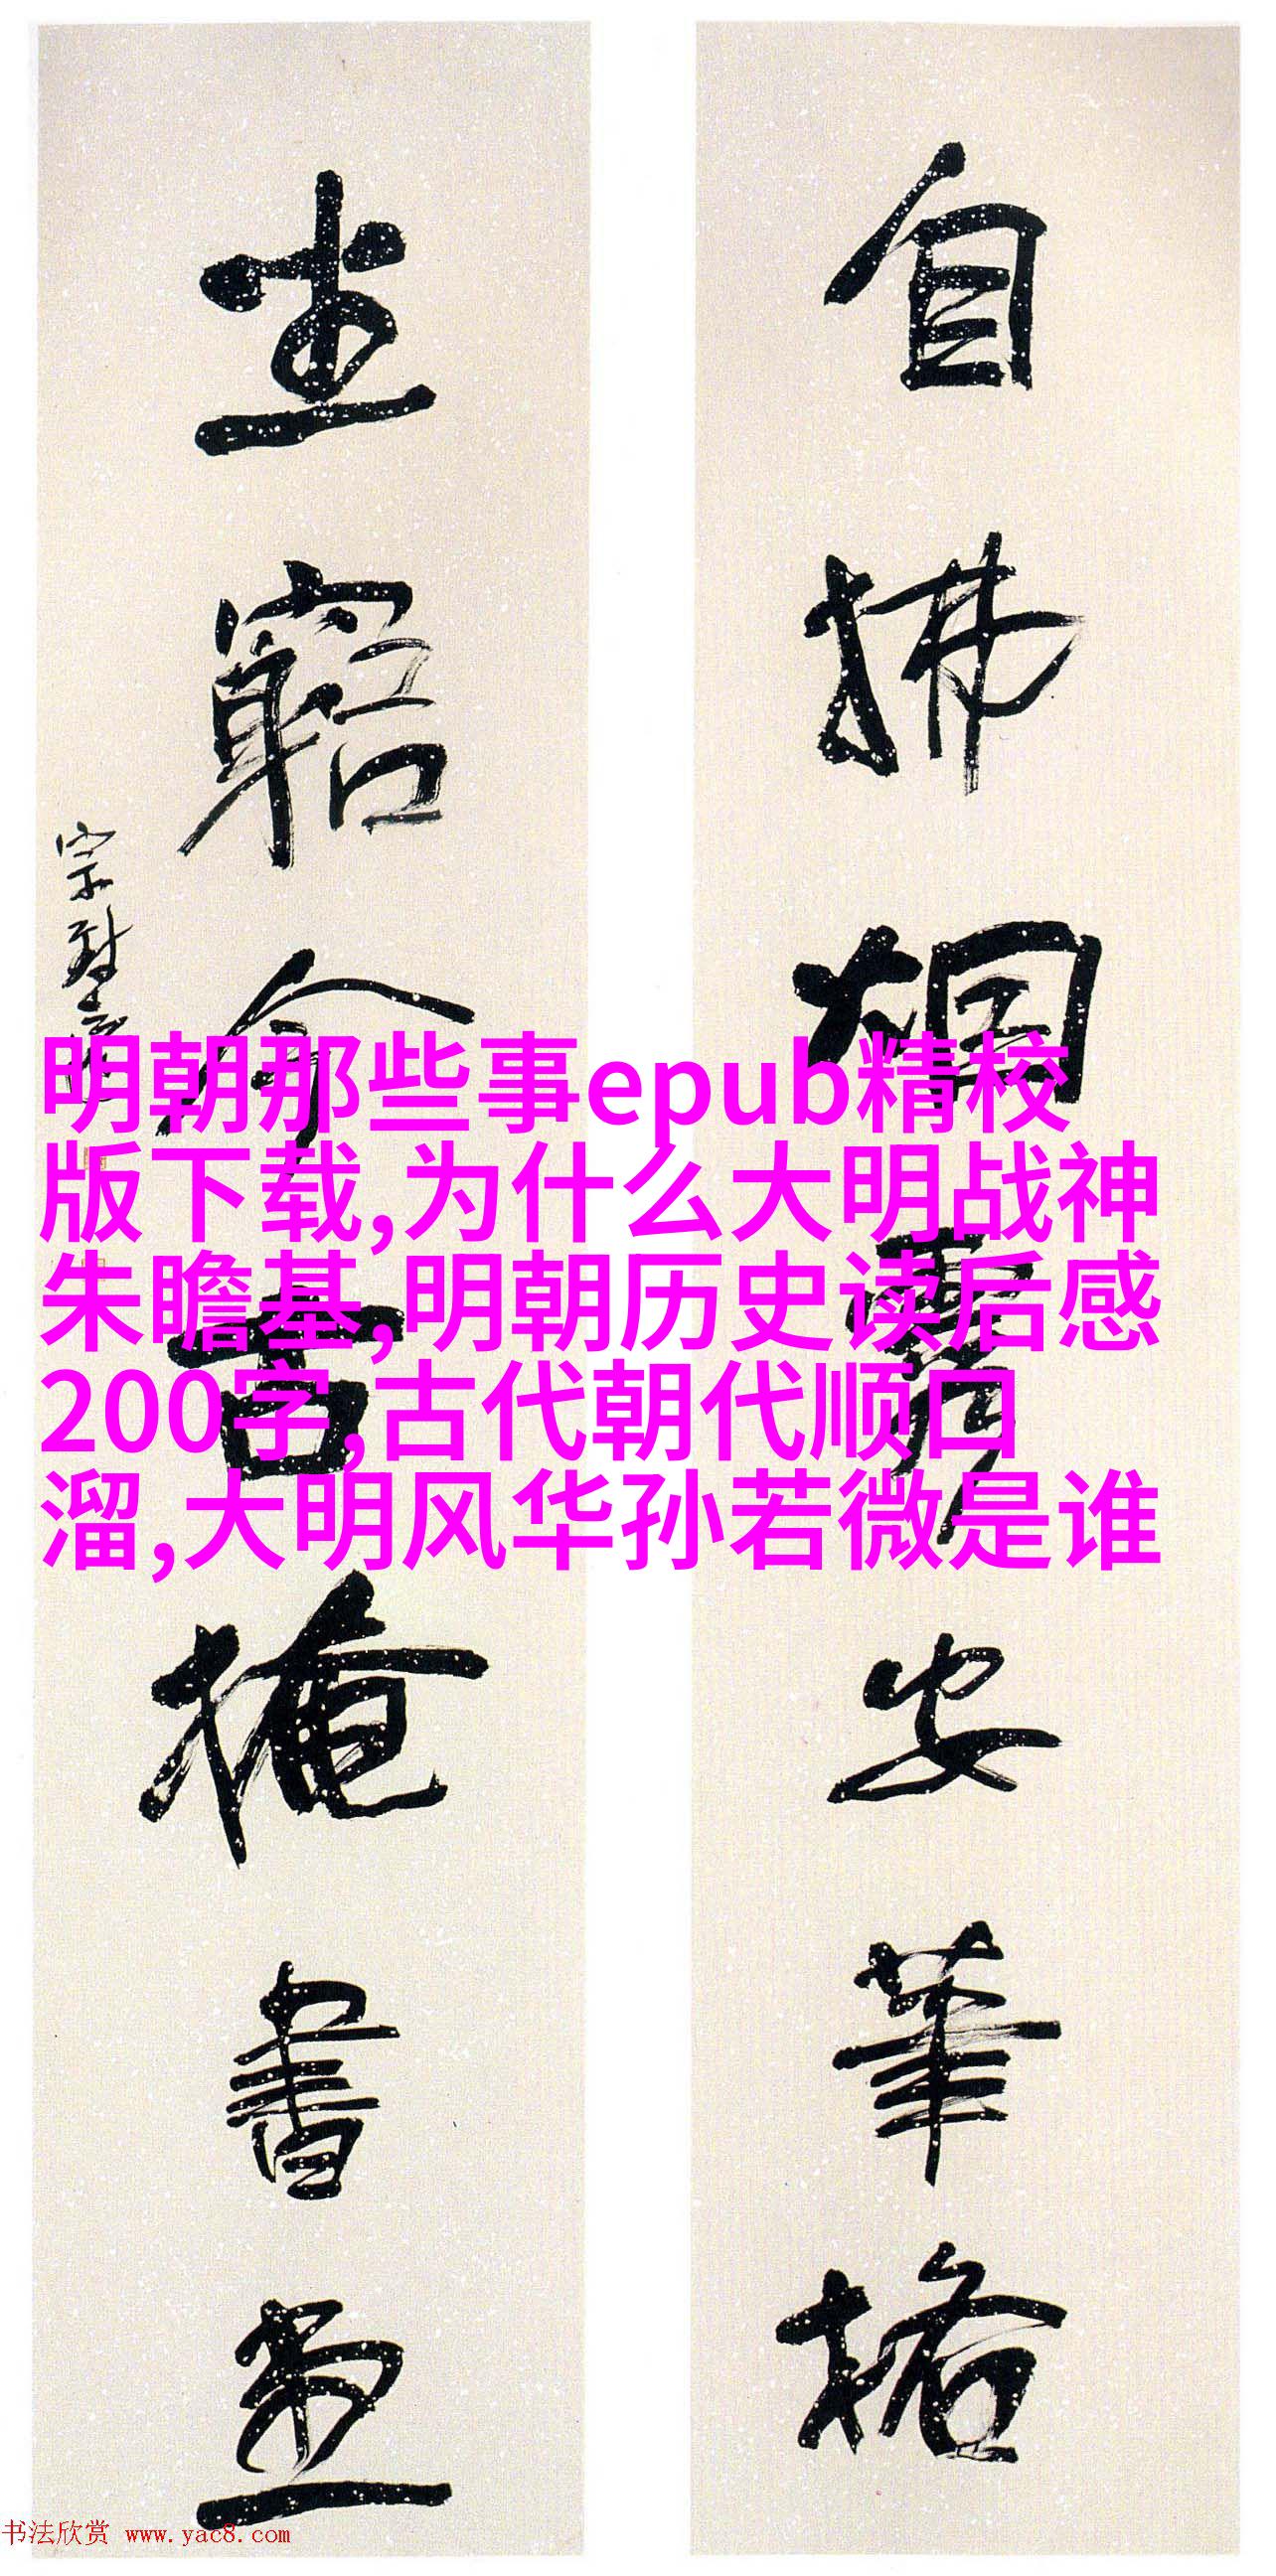 自拂烟霞安筆格
坐窮今古掩書堂
明朝那些事epub精校
版下载,为什么大明战神
朱瞻基,明朝历史读后感
200字,古代朝代顺口
溜,大明风华孙若微是谁
书法欣赏 www.yac8.com